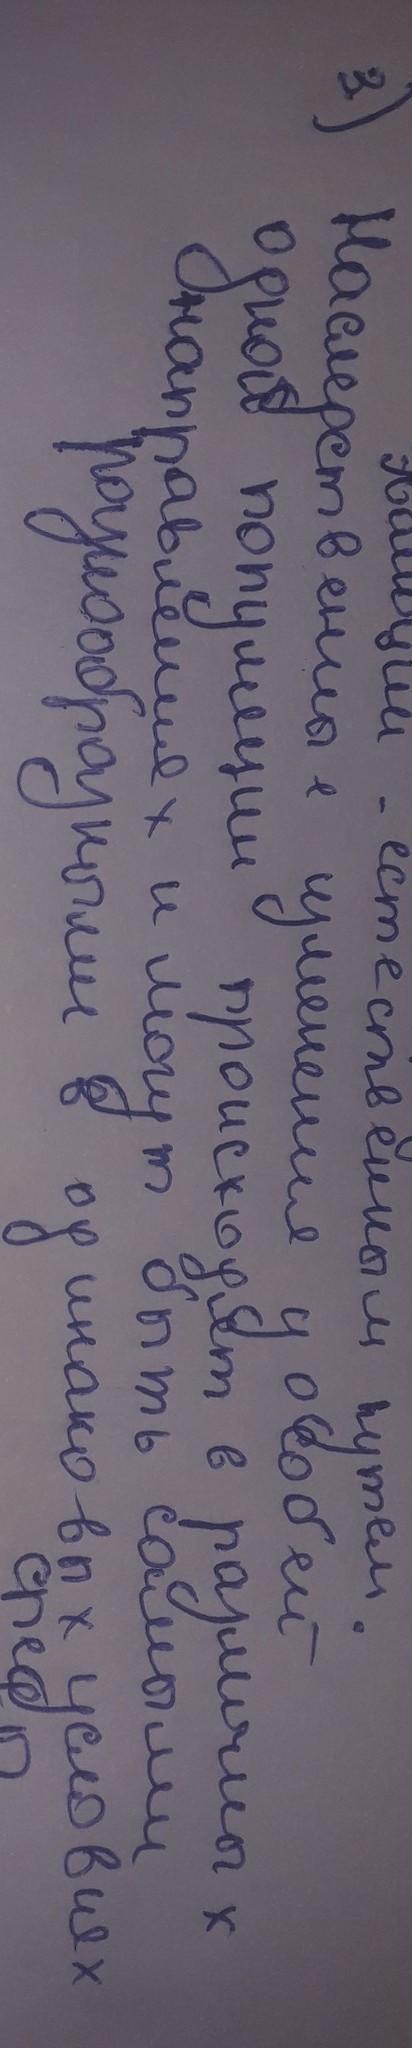 - естественным путем.
3) Наследственные изменения у особей
одной популяции происходят в различных
направлениях и могут быть самыми
разнообразными в одинаковых условиях
среды